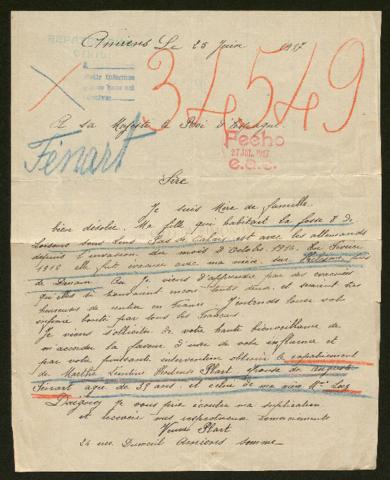 Amiens Le 25 Juin 1917
REPA
CIVIL
34549
A Sa Majesté le Roi d'Espagne
Fecho
27 JUL. 1917
e.a.c.
Fénart
Sire
Je suis Mère de famille
bien désolée. Ma fille qui habitait la fosse 8 de
sous Lens Pas de Calais est avec les allemands
depuis l'invasion du mois d'Octobre 1914. En Février
1916 elle fut évacuée avec ma nièce sur près
de Denain. Or Je viens d'apprendre par des évacués
qu'elles se trouvaient encore toutes deux et seraient très
heureuses de rentrer en France. J'entends louer votre
bonté par tous les Français
Je viens solliciter de votre haute bienveillance de
m'accorder la faveur d'user de votre influence et
par votre puissante intervention obtenir le rapatriement
de Marthe Prudence Plart épouse de Auguste
Fénart agée de 35 ans et celui de ma nièce
Daignez je vous prie écouter ma supplication
et recevoir mes respectueux remerciements
Veuve Plart
24 rue Dumeril Amiens Somme